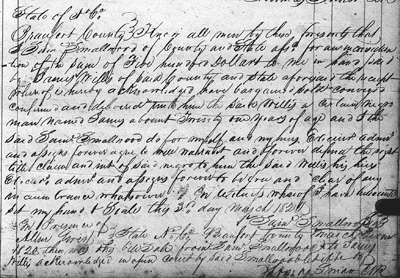 State of N. Ca
Beaufort County } Know all men by these presents that
I Saml Smallwood of County and State afsd. for and in consideration
tion of the sum of Five hundred Dollars to me in hand paid
by James Willis of said County and State aforesaid the receipt
whereof is hereby acknowledged have bargained sold conveyed
confirmed and delivered unto him the said Willis a certain negro
man named James about Twenty one years of age and I the
said Saml Smallwood do for myself and my heirs Executors admrs
and assigns forever agree to will warrant and forever defend the right
title claim and int of said negro to him the said Willis his heirs
Executors admrs and assigns forever to be free and clear of any
incumbrance whatsoever In witness whereof I have hereunto
set my hand & Seale this 3d day March 1820
In Presence Saml Smallwood
Allen State No Ca Beaufort County March
the Bill Sale from Saml Smallwood to James
Willis acknowledged in open court by said Smallwood let it be